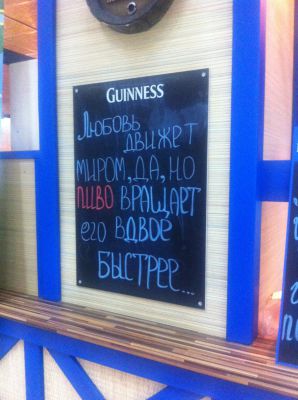 GUINNESS
Любовь
движет
миром, да, но
пиво вращает
его вдвое
быстрее...